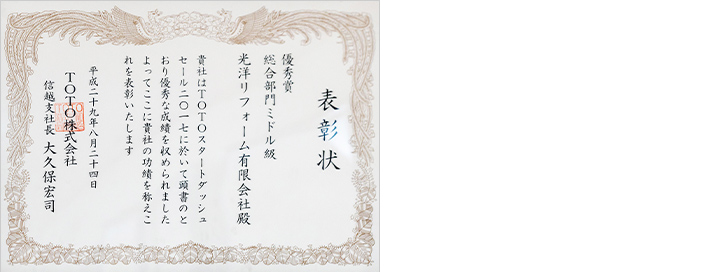 表彰状
優秀賞
総合部門ミドル級
光洋リフォーム有限会社殿
貴社はTOTOスタートダッシュ
セール二〇一七に於いて頭書のと
おり優秀な成績を収められました
よってここに貴社の功績を称えこ
れを表彰いたします
平成二十九年八月二十四日
TOTO株式会社
信越支社長 大久保宏司